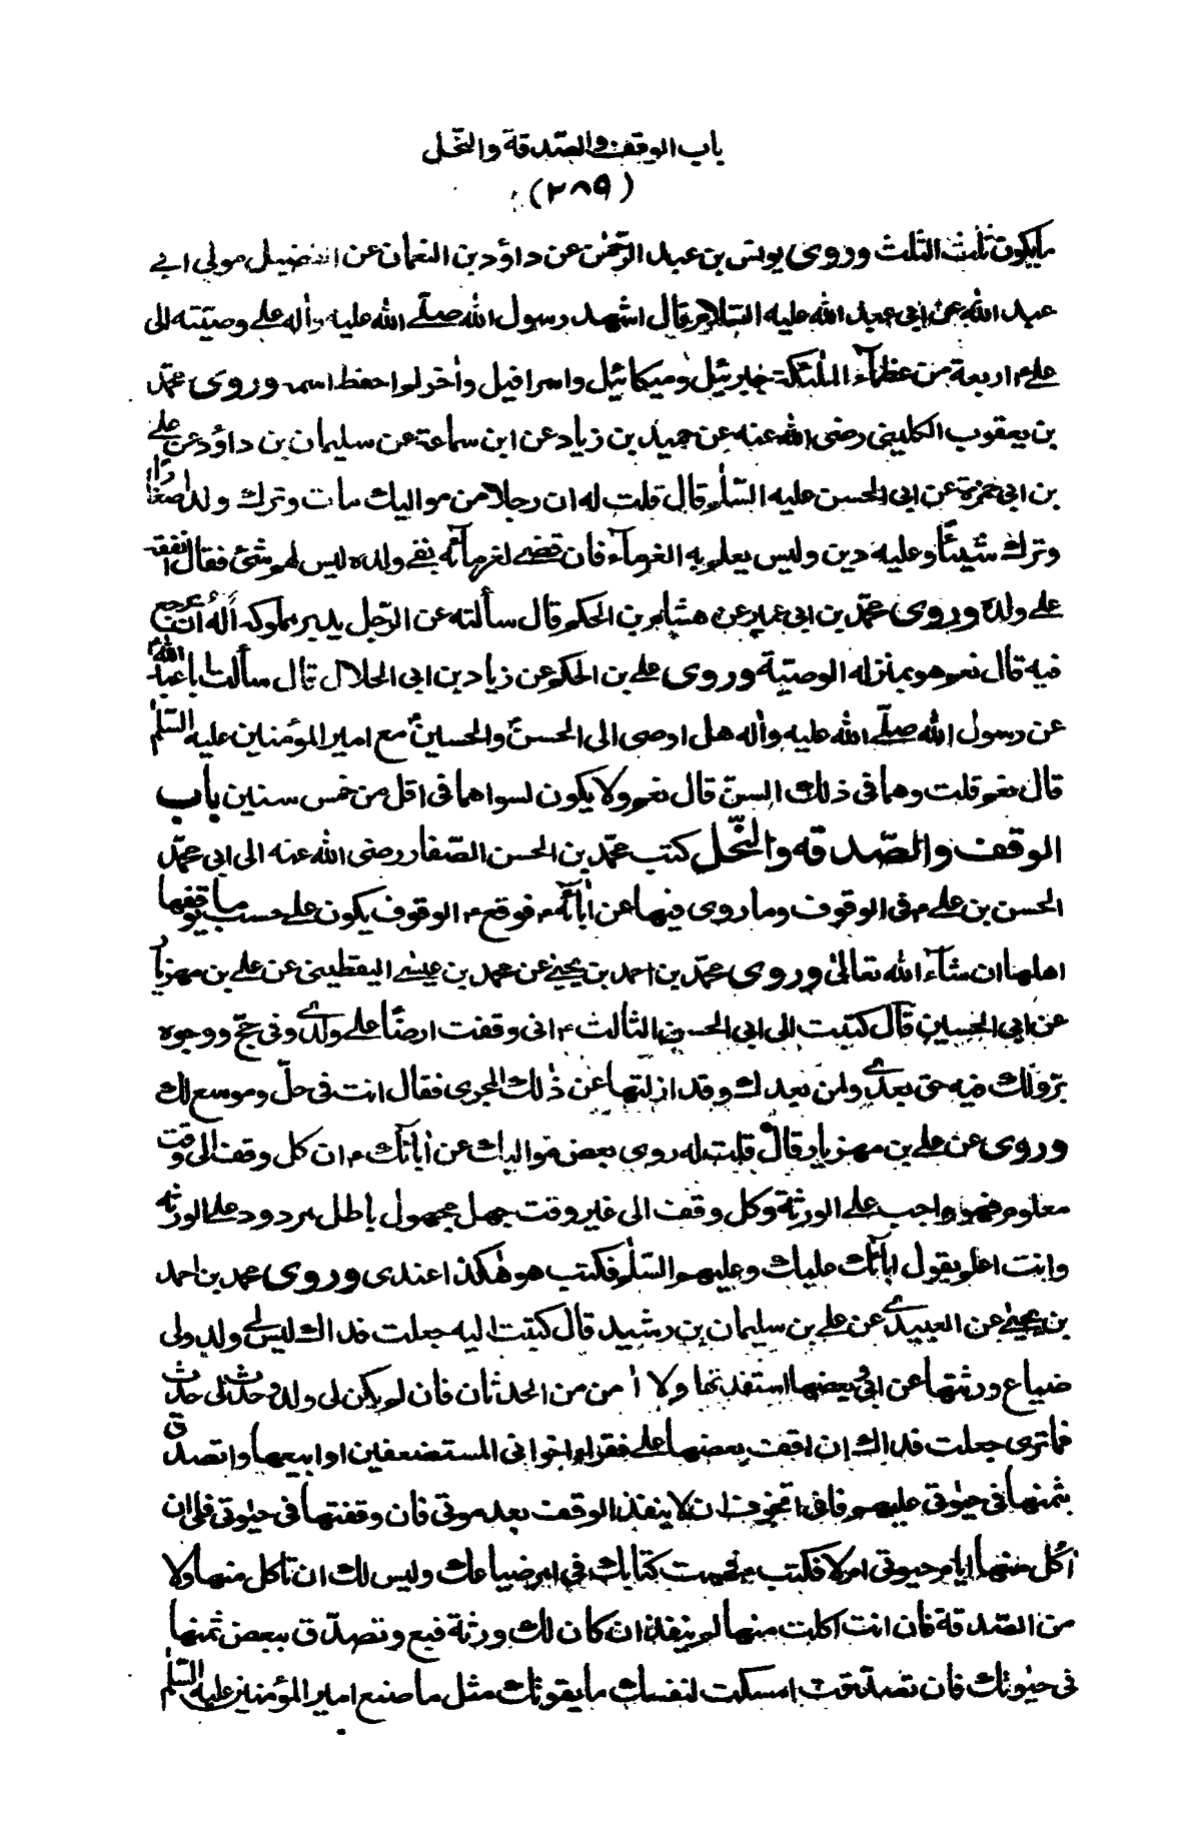 باب الوقف والصّدقة والنّحل
(٢٨٩)
مايكون ثلث الثلث وروى يونس بن عبد الرّحمٰن عن داؤد بن النعمان عن الفضيل مولى ابي
عبد الله عن ابي عبد الله عليه السّلام قال اشهد رسول الله صلّے الله عليه واٰله علے وصيّته الى
علے م اربعة من عظمآء الملٰئكة جبرئيل وميكائيل واسرافيل واٰخر لم احفظ اسمه وروى محمّد
بن يعقوب الكلينى رضى الله عنه عن حميد بن زياد عن ابن سماعة عن سليمان بن داؤد عن علے
بن ابى حمزة عن ابى الحسن عليه السّلٰم قال قلت له ان رجلا من مواليك مات وترك ولدا صغارًا
وترك شيئًا وعليه دين وليس يعلم به الغرمآء فان قضے لغرمائه بقے ولده ليس لهم شئ فقال انفقه
علے ولده وروى محمّد بن ابى عمير عن هشام بن الحكم قال سألته عن الرّجل يدبر مملوكه أله ان يرجع
فيه قال نعم هو بمنزلة الوصيّة وروى علے بن الحكم عن زياد بن ابى الحلال قال سألت ابا عبد الله
عن رسول الله صلّے الله عليه واٰله هل اوصى الى الحسن والحسين مع امير المؤمنين عليه السّلٰم
قال نعم قلت وهما فى ذلك السنّ قال نعم ولا يكون لسواهما فى اقل من خمس سنين باب
الوقف والصّدقه والنّحل كتب محمّد بن الحسن الصّفار رضى الله عنه الى ابى محمّد
الحسن بن علے م فى الوقوف وما روى فيها عن اٰبآئه م فوقع م الوقوف يكون علے حسب ما يوقفها
اهلها ان شآء الله تعالىٰ وروى محمّد بن احمد بن يحيىٰ عن محمد بن عيسٰے اليقطينى عن علے بن مهزيار
عن ابى الحسين قال كتبت الى ابى الحسن الثالث م انى وقفت ارضًا علے ولدے وفى حجّ ووجوه
برّ ولك فيه حق بعدے ولمن بعدك وقد ازلتها عن ذٰلك المجرى فقال انت فى حلّ وموسع لك
وروى عن علے بن مهزيار قال قلت له روى بعض مواليك عن اٰبآئك م ان كل وقف الى وقت
معلوم فهو واجب علے الورثة وكل وقف الى غير وقت جهل مجهول باطل مردود علے الورثه
وانت اعلم بقول اٰبآئك عليك وعليهم السّلٰم فكتب هو هٰكذا عندى وروى محمد بن احمد
بن يحيىٰ عن العبيدے عن علے بن سليمان بن رشيد قال كتبت اليه جعلت فداك ليس لے ولد ولى
ضياع ورثتها عن ابى وبعضها استفدتها ولا اٰمن من الحدثان فان لم يكن لى ولد وحدث لى حدث
فما ترى جعلت فداك ان اقف بعضها علے فقراء اخوانى المستضعفين او ابيعها واتصدّق
بثمنها فى حيٰوتى عليهم فانى اتخوف ان لا ينفذ الوقف بعد موتى فان وقفتها فى حيٰوتى فلى ان
اٰكل منها ايام حيوتى ام لا فكتب م فهمت كتابك فى امر ضياعك وليس لك ان تاكل منها ولا
من الصّدقة فان انت اكلت منها لم ينفذ ان كان لك ورثة فبع وتصدّق ببعض ثمنها
فى حيٰوتك فان تصدّقت امسكت لنفسك ما يقوتك مثل ما صنع امير المؤمنين عليه السّلٰم